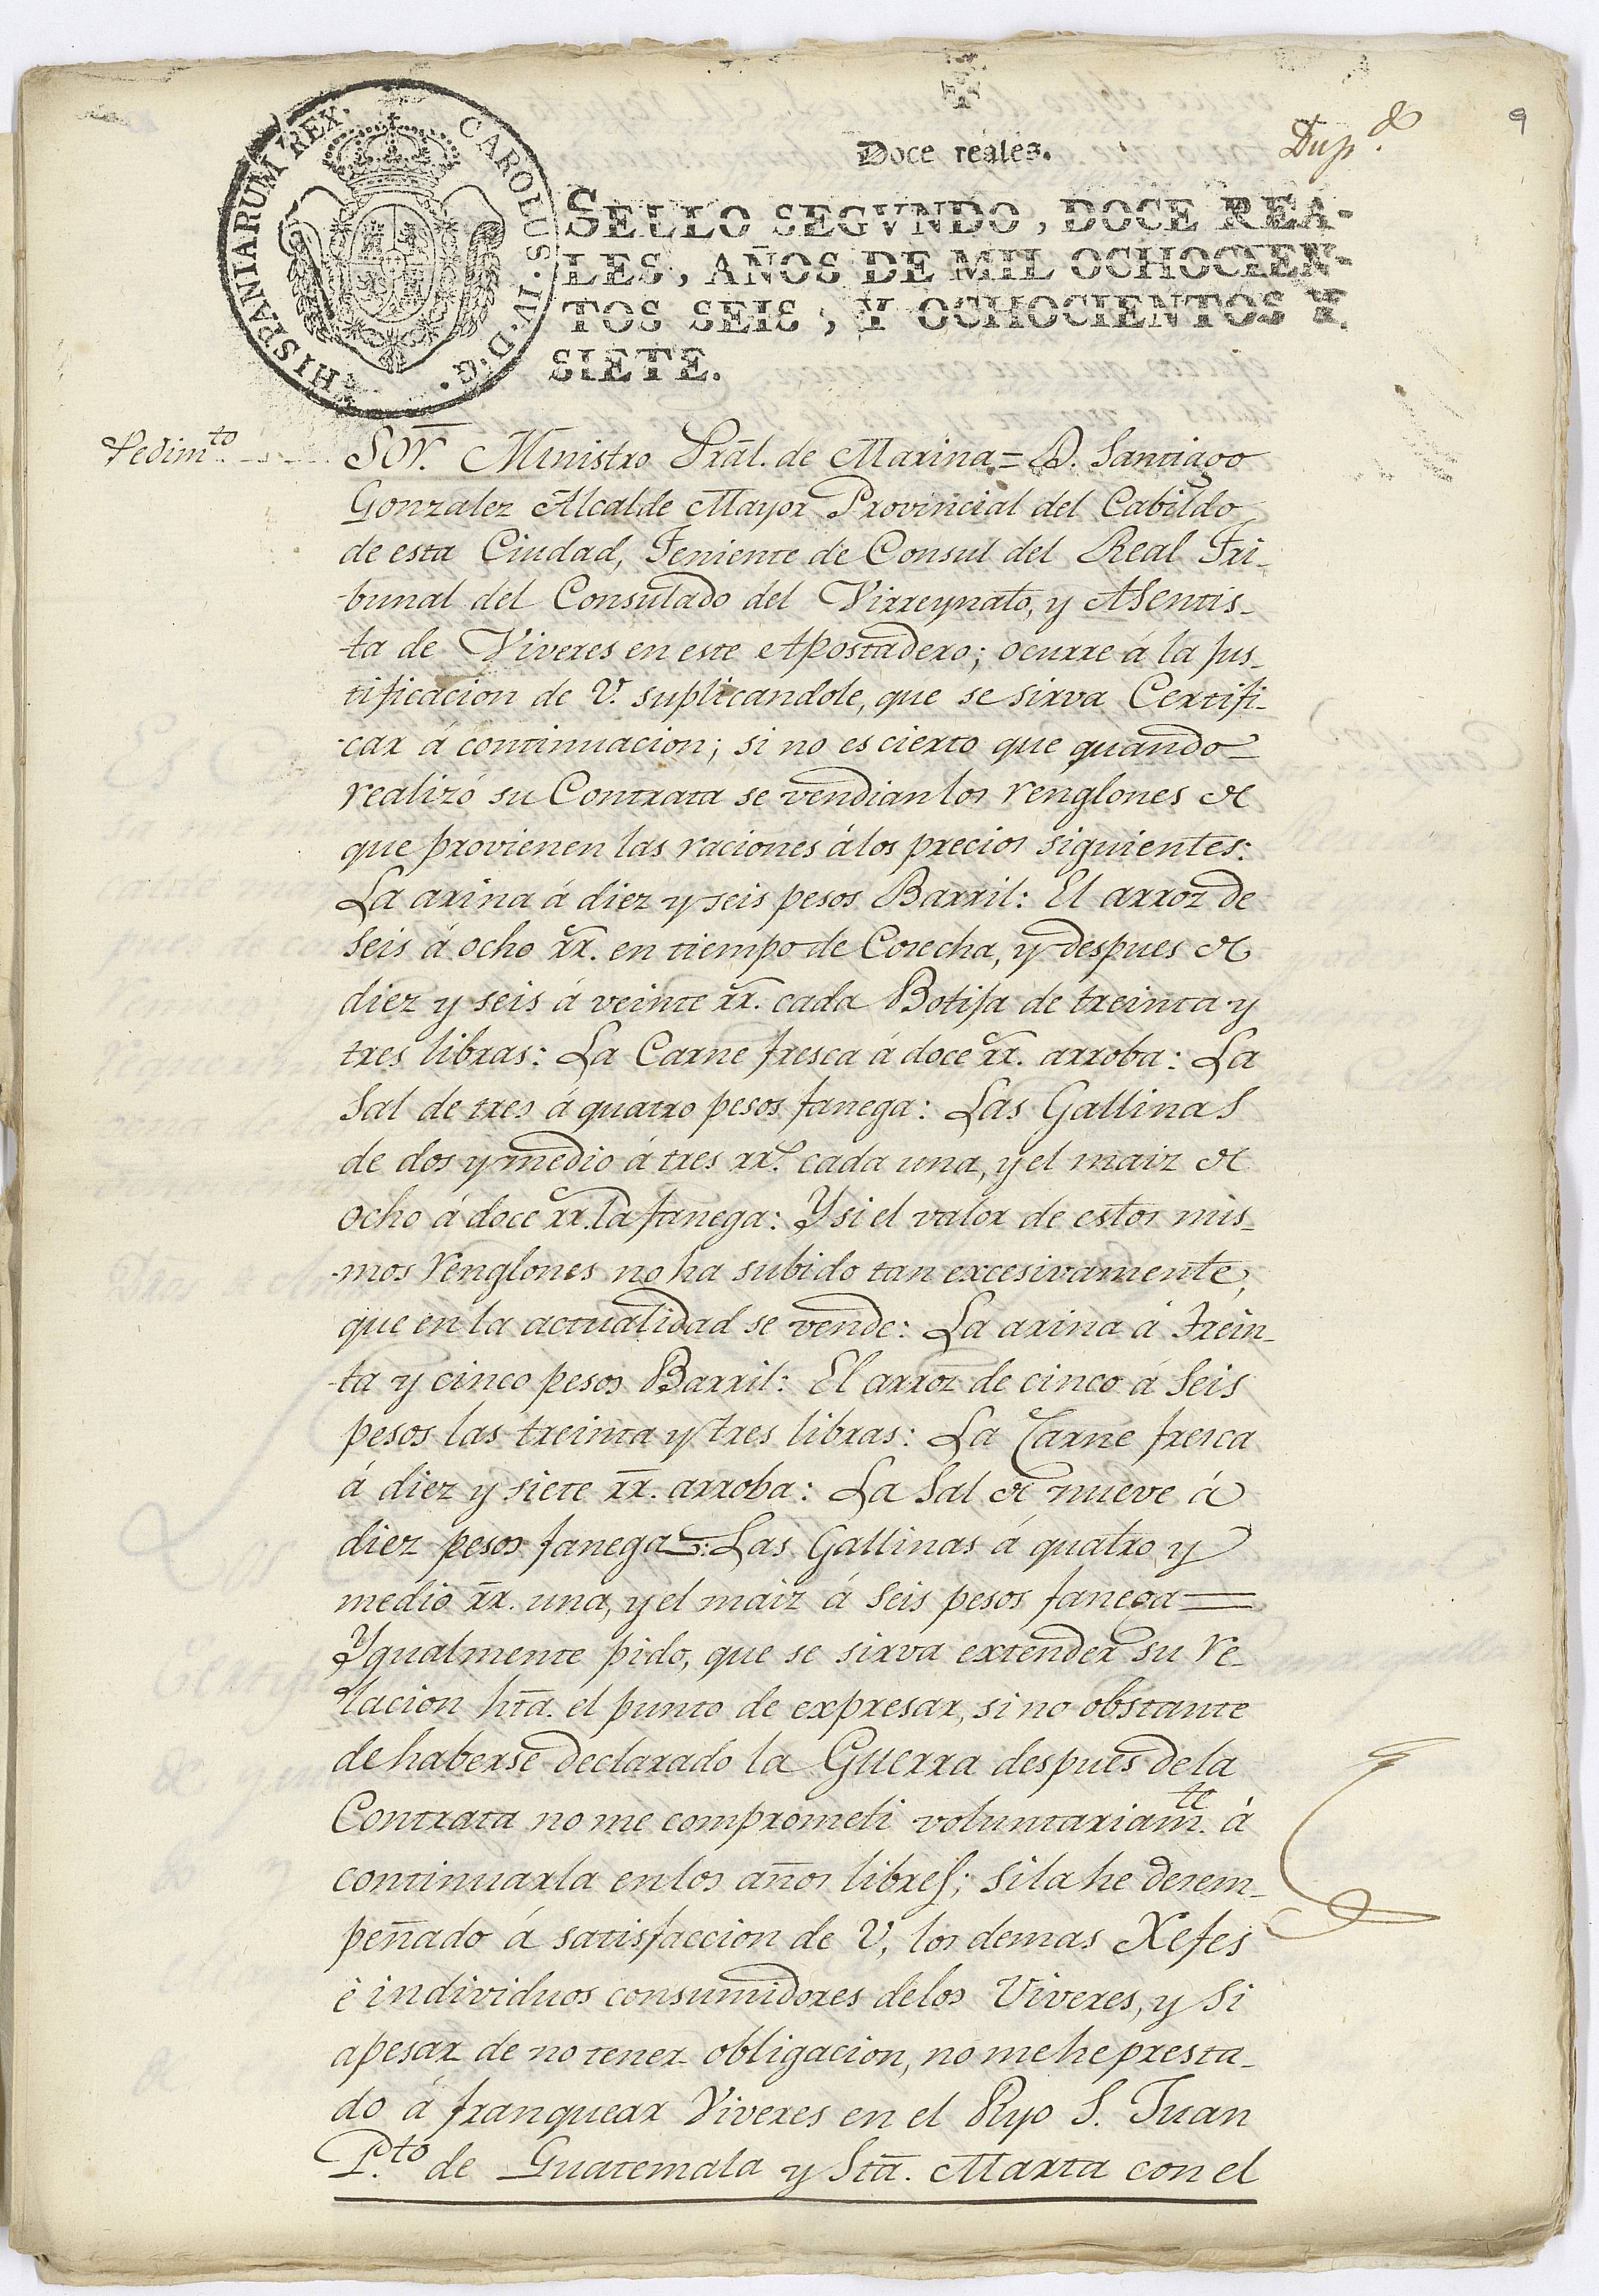 9
Dup.do
Doce reales.
CAROLUS·IV·D·G·
HISPANIARUM REX·
SELLO SEGVNDO, DOCE REA-
LES, AÑOS DE MIL OCHOCIEN-
TOS SEIS, Y OCHOCIENTOS Y
SIETE.
Pedim.to
Sor. Ministro Pral. de Marina = D. Santiago
Gonzalez Alcalde Mayor Provincial del Cabildo
de esta Ciudad, Teniente de Consul del Real Tri-
bunal del Consulado del Virreynato, y Asentis-
ta de Viveres en este Apostadero; ocurre á la jus-
tificacion de V. suplicandole, que se sirva Certifi-
car á continuacion; si no es cierto que quando
realizó su Contrata se vendian los renglones de
que provienen las raciones á los precios siguientes:
La arina á diez y seis pesos Barril: El arroz de
seis á ocho rr. en tiempo de Cosecha, y despues de
diez y seis á veinte rr. cada Botija de treinta y
tres libras: La Carne fresca á doce rr. arroba: La
Sal de tres á quatro pesos fanega: Las Gallinas
de dos y medio á tres rr.s cada una, y el maiz de
ocho á doce rr. la fanega: Y si el valor de estos mis-
mos renglones no ha subido tan excesivamente,
que en la actualidad se vende: La arina á Trein-
ta y cinco pesos Barril: El arroz de cinco á Seis
pesos las treinta y tres libras: La Carne fresca
á diez y siete rr. arroba: La Sal de nueve á
diez pesos fanega=: Las Gallinas á quatro y
medio rr. una, y el maiz á Seis pesos fanega=
Ygualmente pido, que se sirva extender su re-
lacion hta. el punto de expresar, si no obstante
de haberse declarado la Guerra despues de la
Contrata no me comprometi voluntariam.te á
continuarla en los años libres; si la he desem-
peñado á satisfaccion de V, los demas Xefes
é individuos consumidores de los Viveres, y si
apesar de no tener obligacion, no me he presta-
do á franquear Viveres en el Ryo S. Juan
P.to de Guatemala y Sta. Marta con el